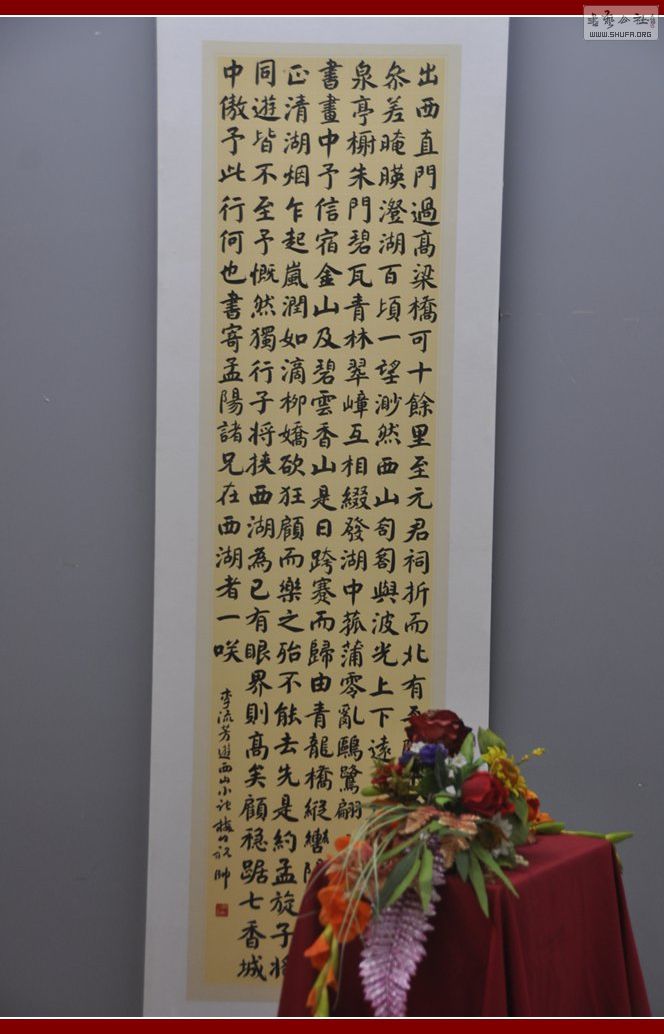 出西直門過高梁橋可十餘里至元君祠折而北有
叅差晻暎澄湖百頃一望渺然西山匌匒與波光上下遠
泉亭榭朱門碧瓦青林翠嶂互相綴發湖中菰蒲零亂鷗鷺翩
書畫中予信宿金山及碧雲香山是日跨蹇而歸由青龍橋縱轡
正清湖烟乍起嵐潤如滴柳嬌欲狂顧而樂之殆不能去先是約孟旋子將
同遊皆不至予慨然獨行子將挾西湖為己有眼界則高矣顧稳踞七香城
中傲予此行何也書寄孟陽諸兄在西湖者一咲
李流芳遊西山小記 祝帥
書藝公社
WWW.SHUFA.ORG